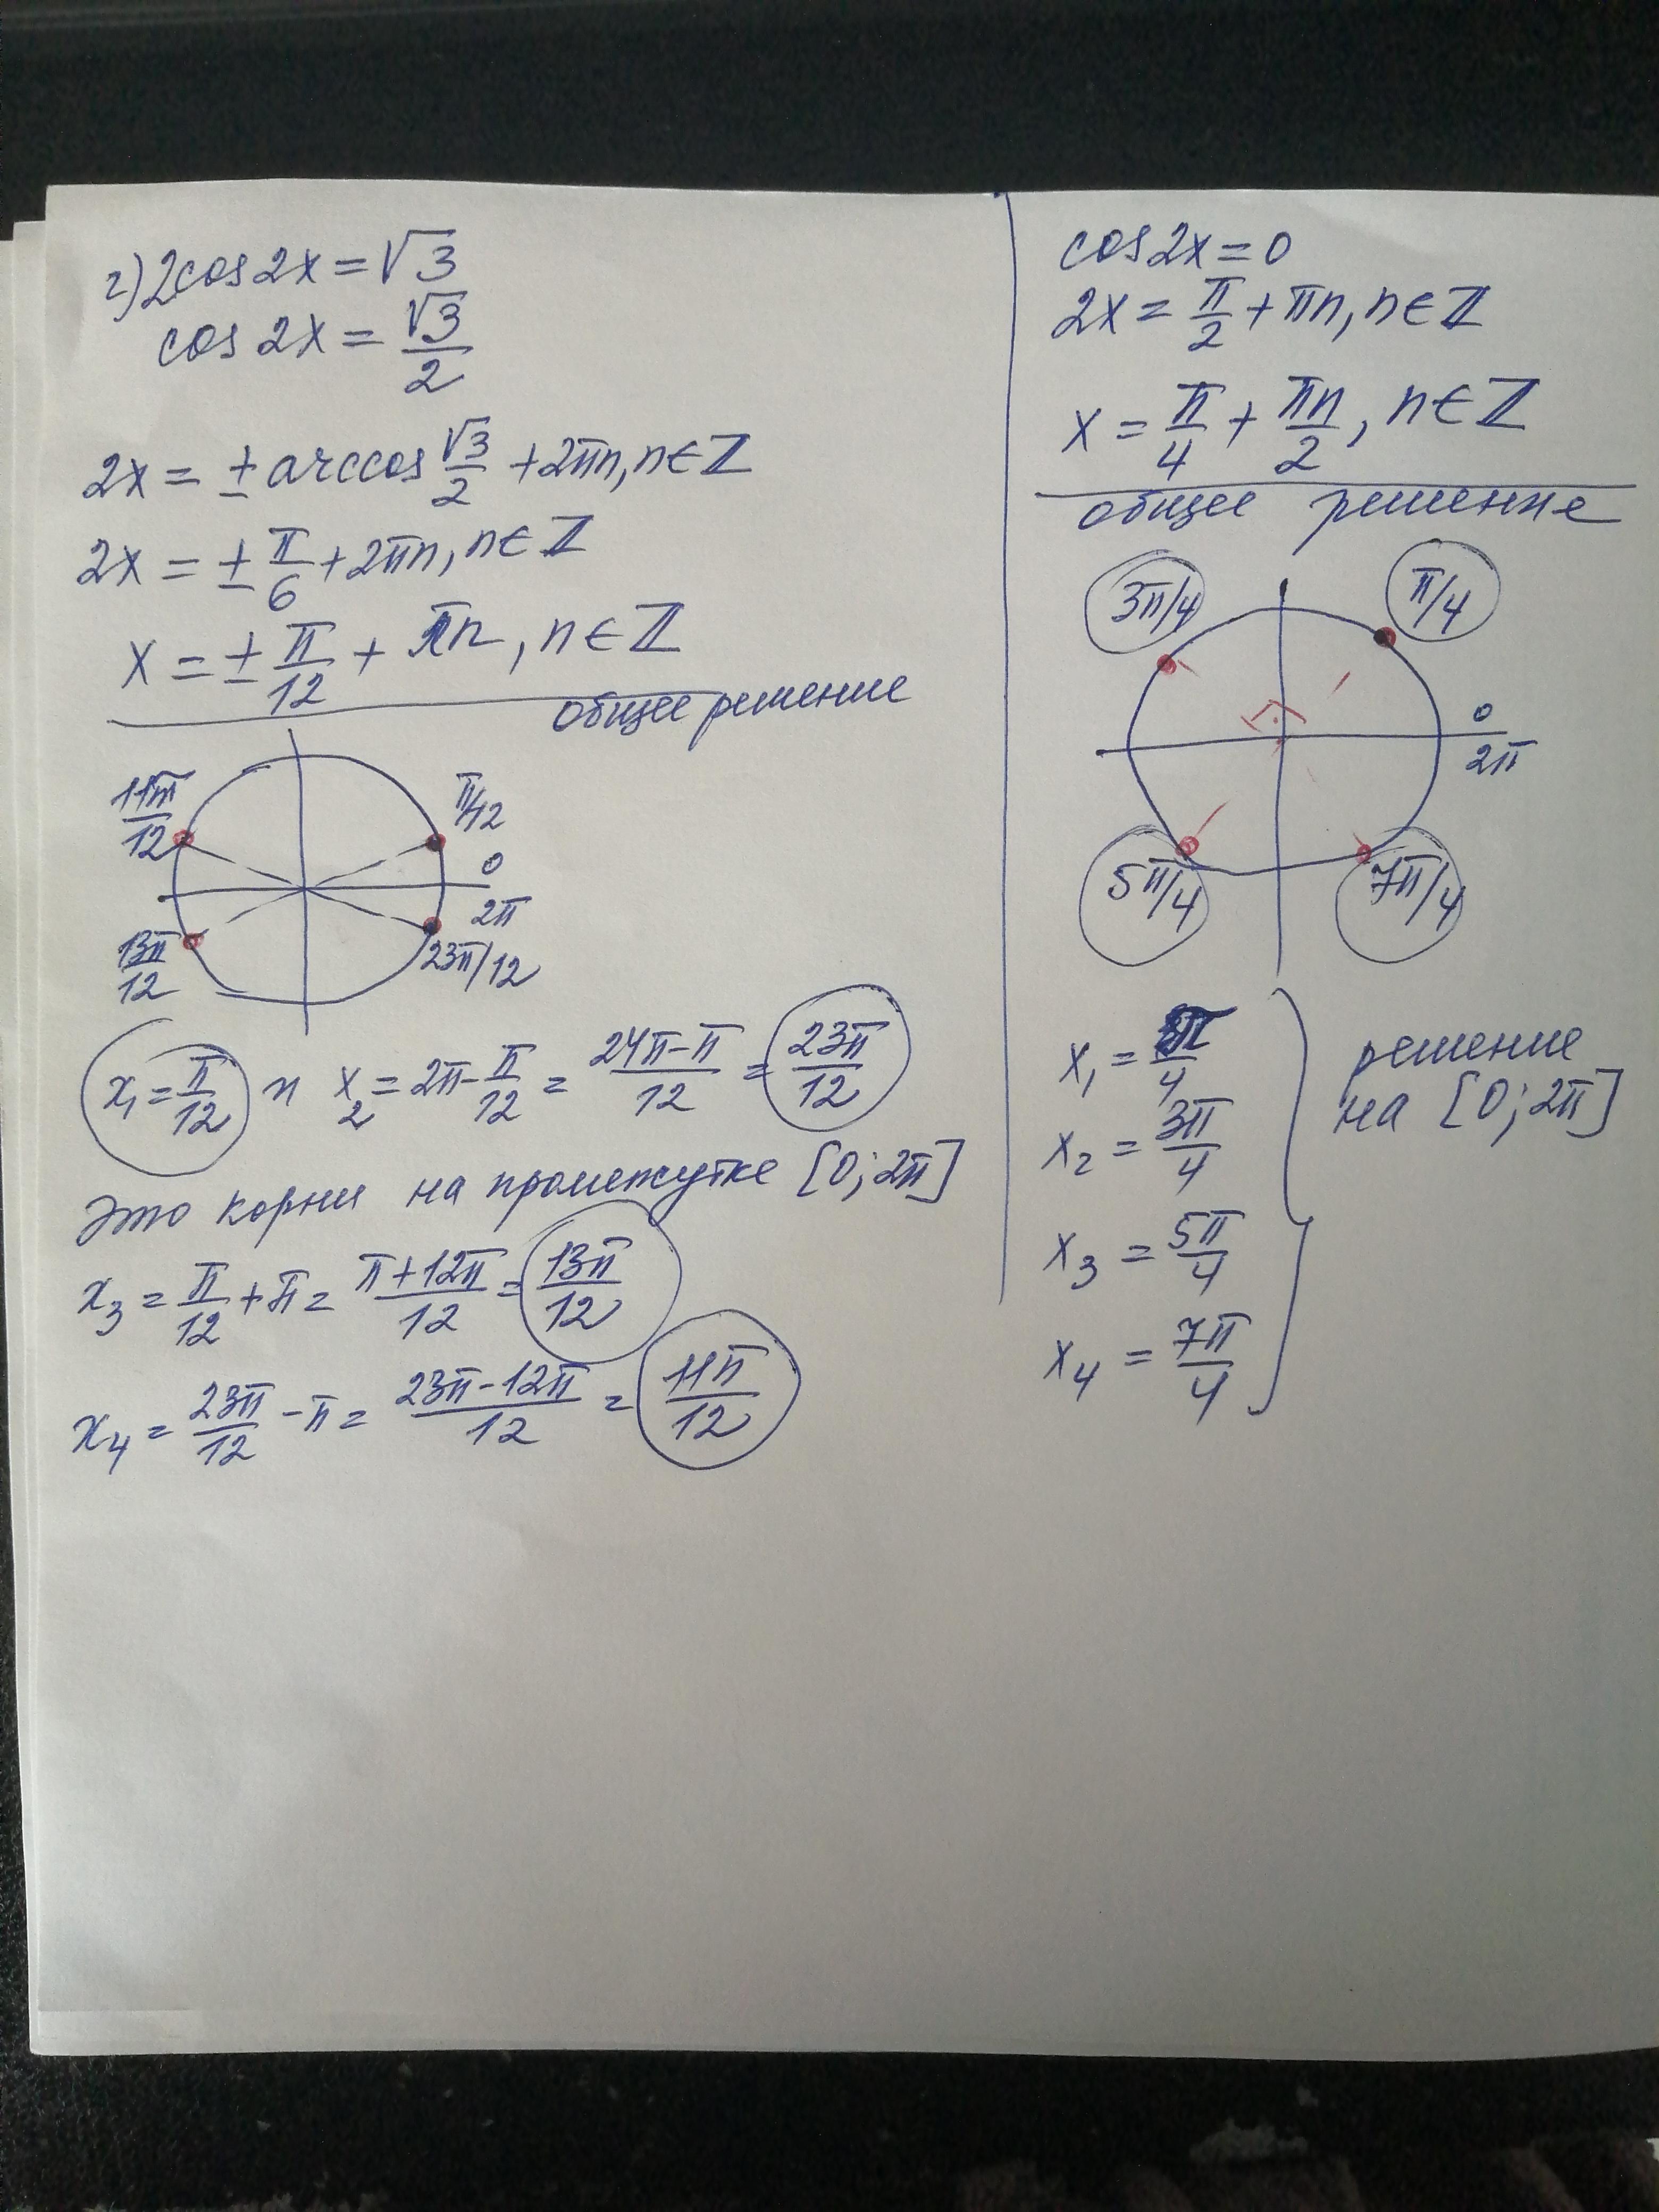 г) 2cos2x = √3
cos 2x = √3/2
2x = ± arccos √3/2 + 2πn, n ∈ ℤ
2x = ± π/6 + 2πn, n ∈ ℤ
x = ± π/12 + πn, n ∈ ℤ
общее решение
11π/12
π/12
0
2π
13π/12
23π/12
x₁ = π/12 и x₂ = 2π - π/12 = (24π-π)/12 = 23π/12
это корни на промежутке [0; 2π]
x₃ = π/12 + π = (π+12π)/12 = 13π/12
x₄ = 23π/12 - π = (23π-12π)/12 = 11π/12
cos2x = 0
2x = π/2 + πn, n ∈ ℤ
x = π/4 + πn/2, n ∈ ℤ
общее решение
3π/4
π/4
0
2π
5π/4
7π/4
x₁ = π/4
x₂ = 3π/4
x₃ = 5π/4
x₄ = 7π/4
решение
на [0; 2π]